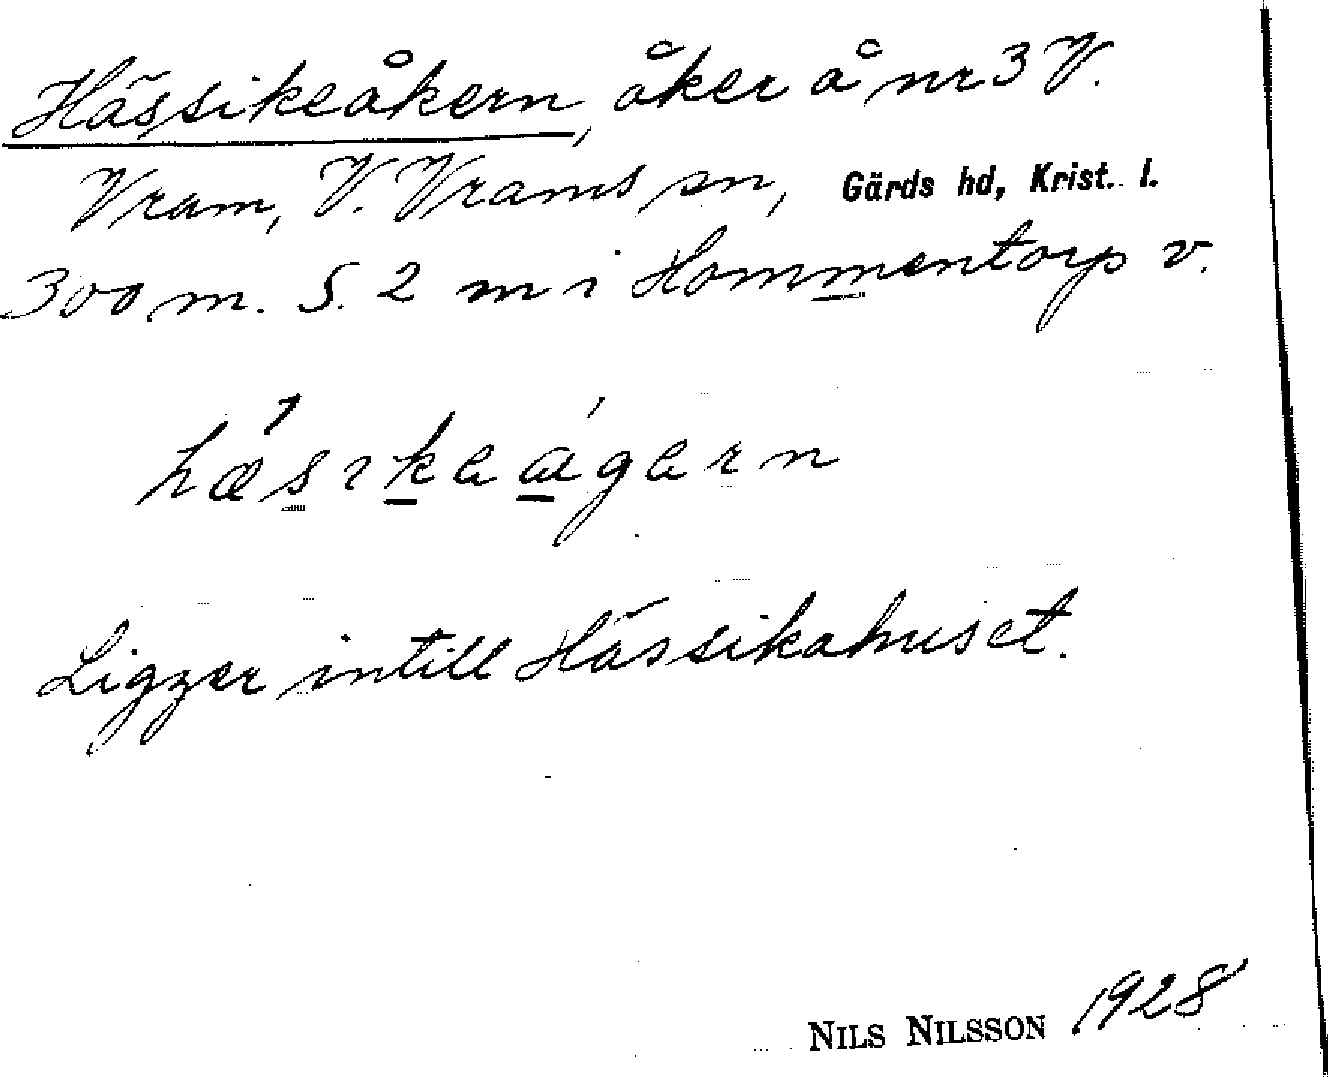 Hässikeåkern, åker å nr 3 V.
Vram, V. Vrams sn, Gärds hd, Krist. l.
300 m. S. 2 m i Hommentorp v.
hæsikaágarn
Ligger intill Hässikahuset.
NILS NILSSON 1928